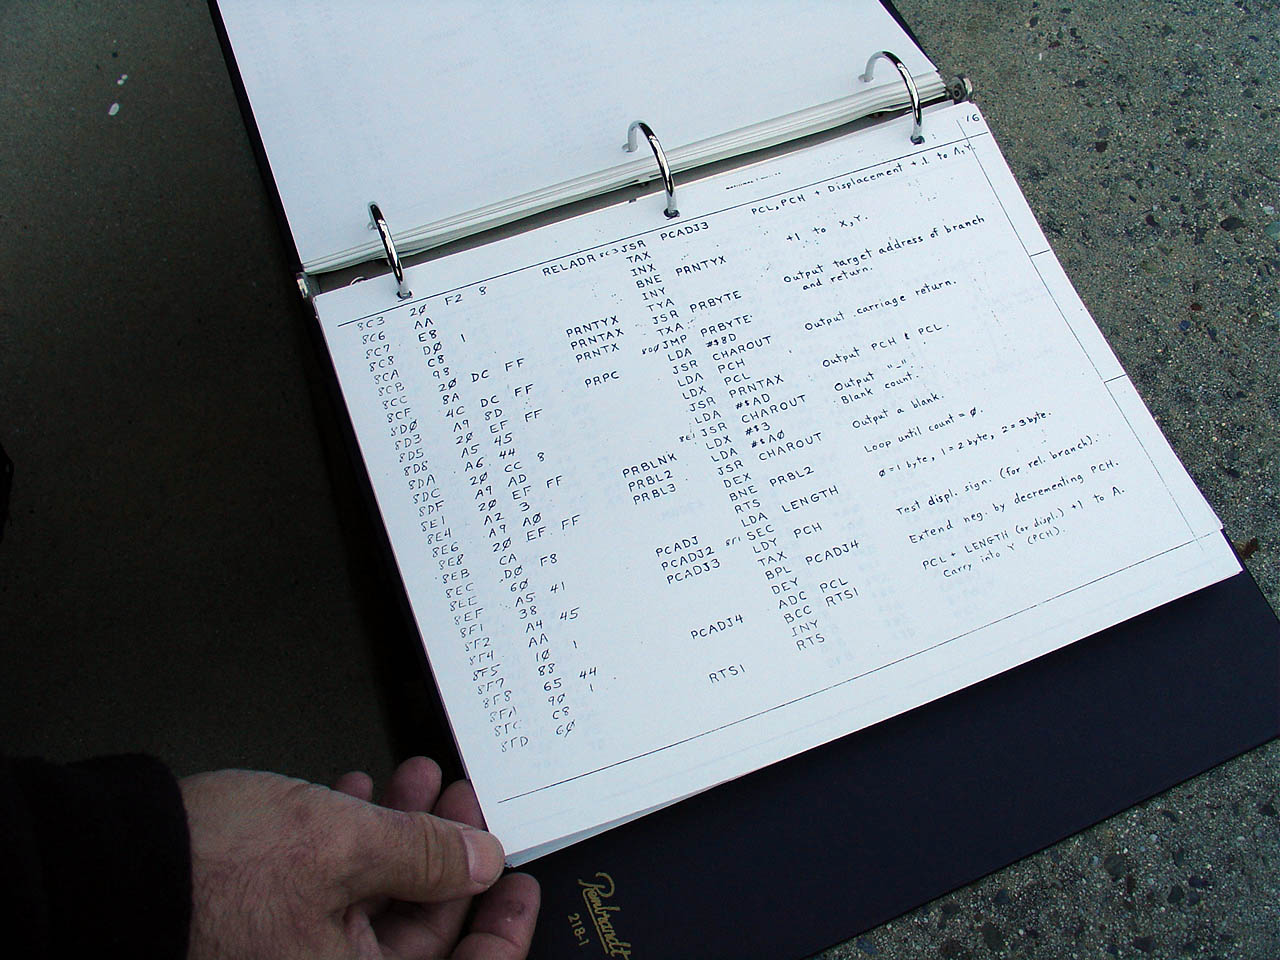 16
8C3 2Ø F2 8 RELADR 8C3 JSR PCADJ3 PCL,PCH + Displacement +1 to A,Y.
8C6 AA TAX
8C7 E8 INX +1 to X,Y.
8C8 DØ 1 BNE PRNTYX
8CA C8 INY
8CB 98 PRNTYX TYA Output target address of branch
8CC 2Ø DC FF PRNTAX JSR PRBYTE and return.
8CF 8A PRNTX TXA
8DØ 4C DC FF 8DØ JMP PRBYTE
8D3 A9 8D PRPC LDA #$8D Output carriage return.
8D5 2Ø EF FF JSR CHAROUT
8D8 A5 45 LDA PCH
8DA A6 44 LDX PCL Output PCH & PCL.
8DC 2Ø CC 8 JSR PRNTAX
8DF A9 AD LDA #$AD Output "-".
8E1 2Ø EF FF 8E1 JSR CHAROUT
8E4 A2 3 PRBLNK LDX #$3 Blank count.
8E6 A9 AØ PRBL2 LDA #$AØ
8E8 2Ø EF FF PRBL3 JSR CHAROUT Output a blank.
8EB CA DEX
8EC DØ F8 BNE PRBL2 Loop until count=Ø.
8EE 6Ø RTS
8EF A5 41 PCADJ LDA LENGTH Ø=1byte, 1=2byte, 2=3byte.
8F1 38 PCADJ2 8F1 SEC
8F2 A4 45 PCADJ3 LDY PCH
8F4 AA TAX Test displ. sign. (for rel. branch).
8F5 1Ø 1 BPL PCADJ4
8F7 88 DEY Extend neg. by decrementing PCH.
8F8 65 44 PCADJ4 ADC PCL
8FA 9Ø 1 BCC RTS1 PCL + LENGTH (or displ.) +1 to A.
8FC C8 INY Carry into Y (PCH).
8FD 6Ø RTS1 RTS
Rembrandt
218-1